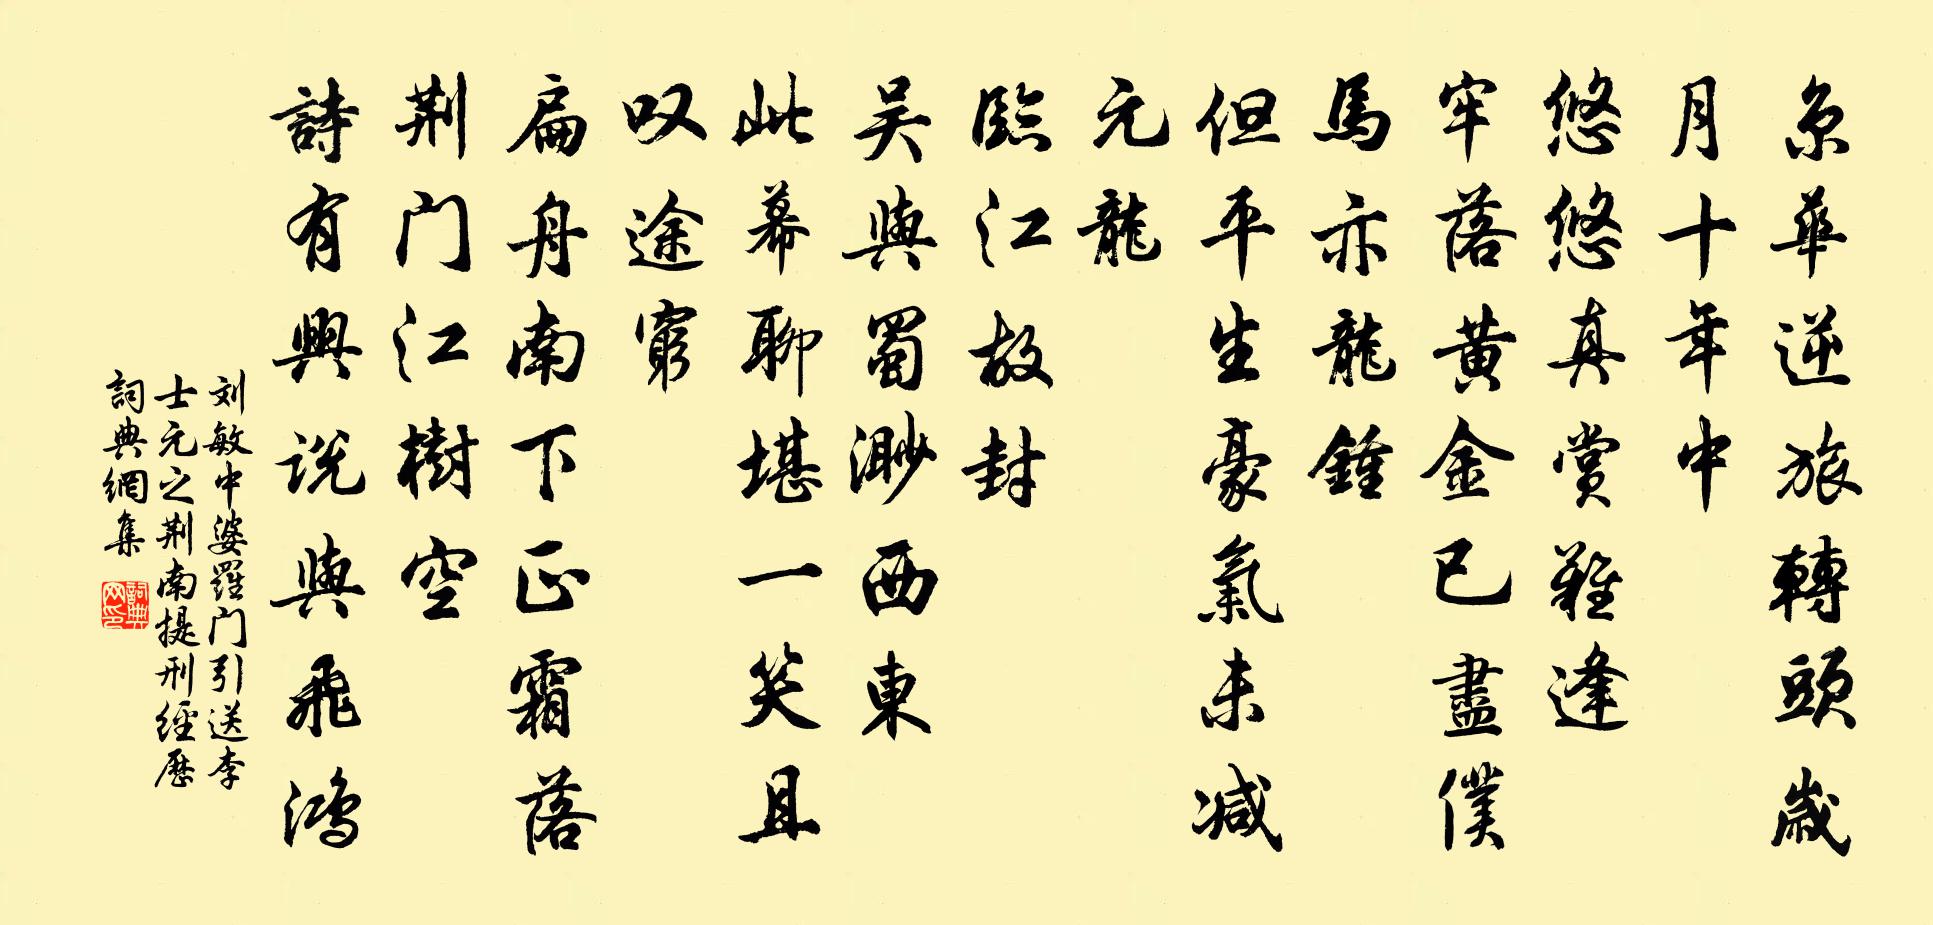 京華逆旅轉頭歲
月十年中
悠悠真賞難逢
牢落黄金已盡僕
馬亦龍鍾
但平生豪氣未减
元龍
臨江故封
吴與蜀渺西東
此幕聊堪一笑且
叹途窮
扁舟南下正霜落
荆门江樹空
詩有興説與飛鴻
刘敏中婆羅门引送李
士元之荆南提刑經歷
詞典網集
詞典网印